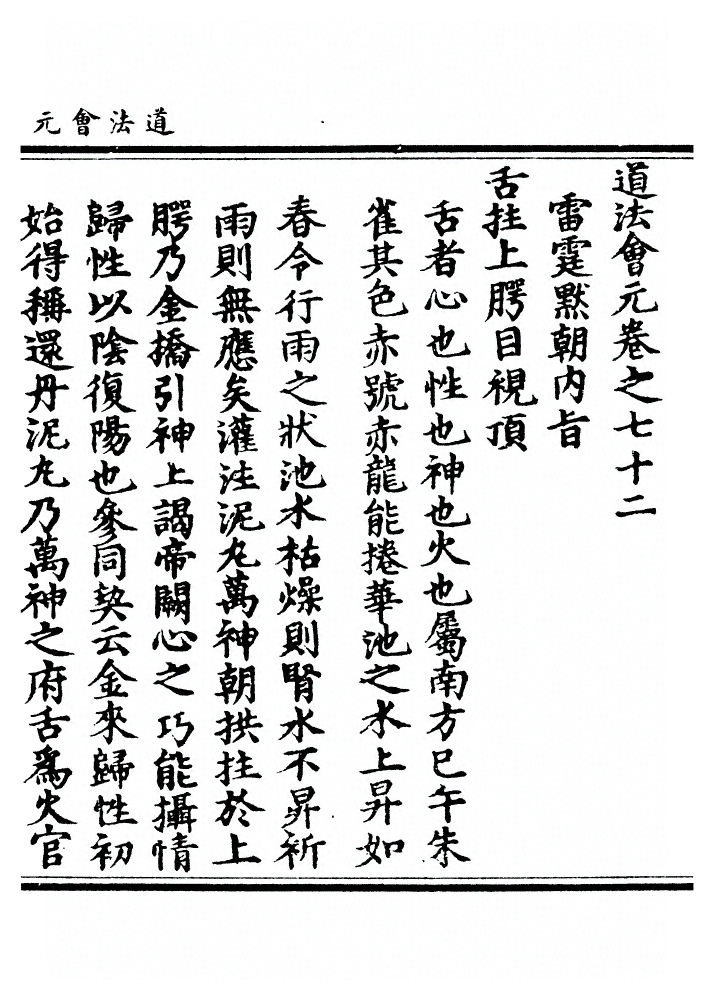 道法會元
道法會元卷之七十二
雷霆默朝内旨
舌拄上腭目視頂
舌者心也性也神也火也屬南方巳午朱
雀其色赤號赤龍能捲華池之水上昇如
春令行雨之狀池水枯燥則腎水不昇祈
雨則無應矣灌注泥丸萬神朝拱拄於上
腭乃金橋引神上謁帝闕心之巧能攝情
歸性以陰復陽也參同契云金來歸性初
始得稱還丹泥丸乃萬神之府舌爲火官